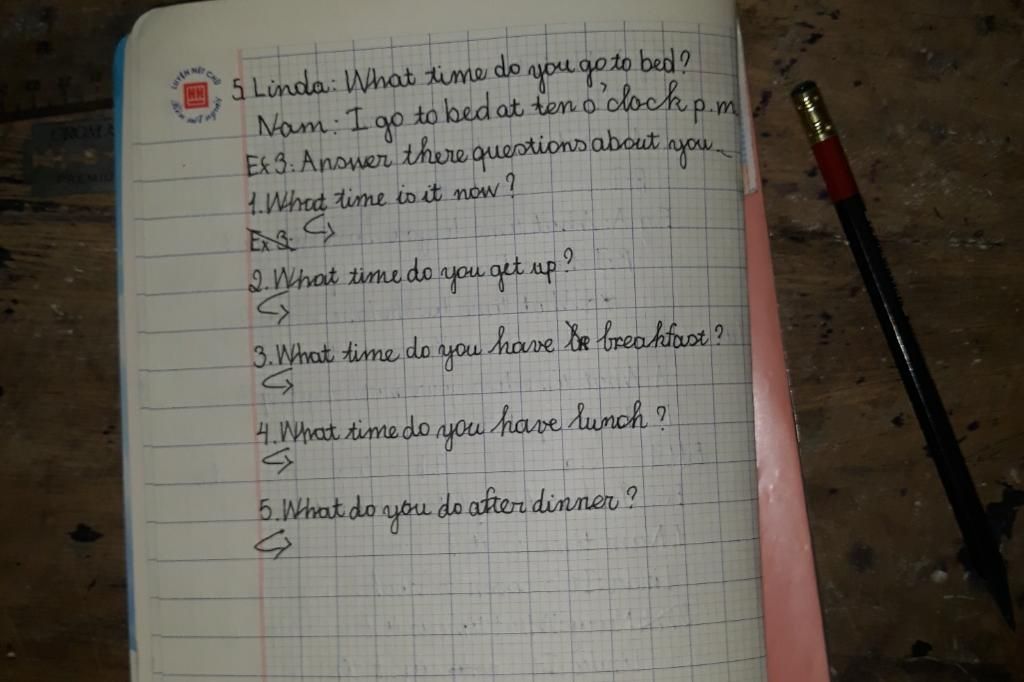 LUYỆN NÉT CHỮ
5. Linda: What time do you go to bed?
Nam: I go to bed at ten o'clock p.m
Ex 3: Answer there questions about you
1. What time is it now?
Ex 3:
2. What time do you get up?
3. What time do you have br breakfast?
4. What time do you have lunch?
5. What do you do after dinner?